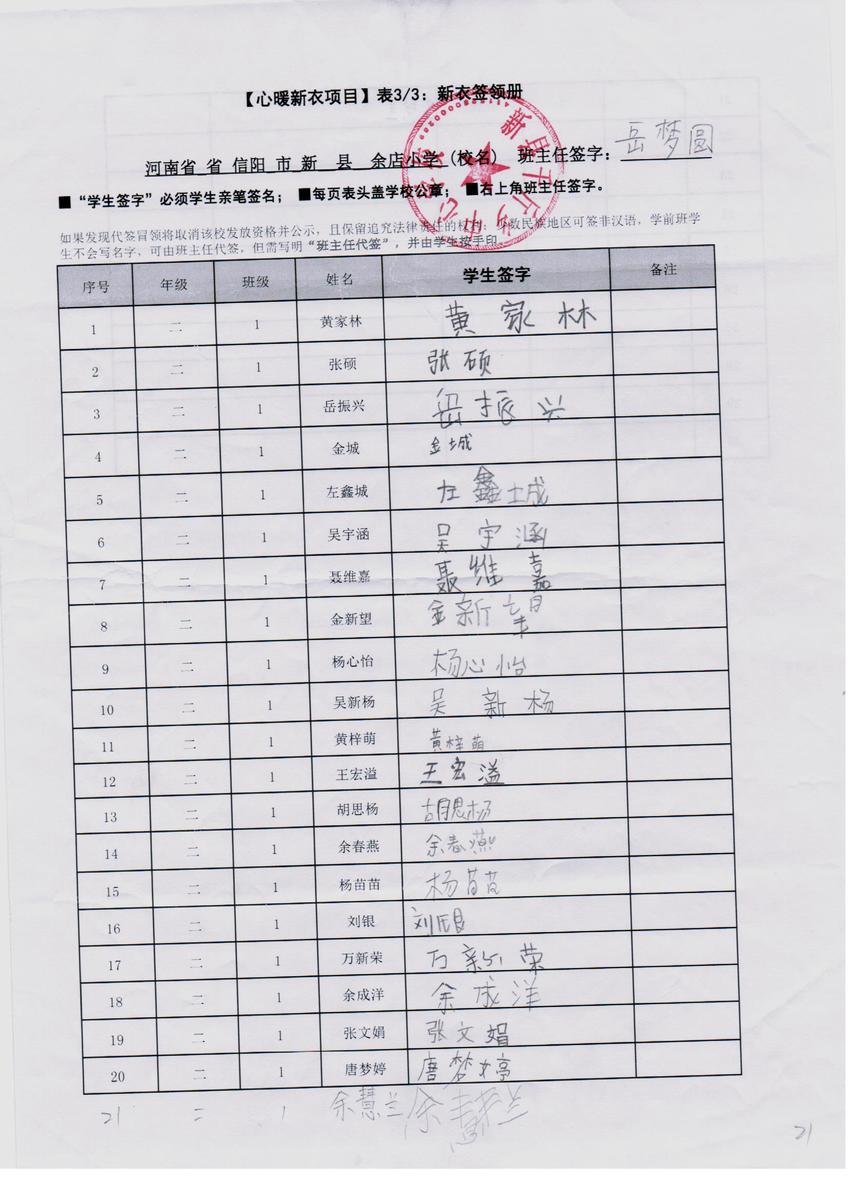 【心暖新衣项目】表3/3：新衣签领册
河南省 省 信阳 市 新 县 余店小学 (校名) 班主任签字：岳梦圆
■“学生签字”必须学生亲笔签名； ■每页表头盖学校公章； ■右上角班主任签字。
如果发现代签冒领将取消该校发放资格并公示，且保留追究法律责任的权利；少数民族地区可签非汉语，学前班学
生不会写名字，可由班主任代签，但需写明“班主任代签”，并由学生按手印。
序号 年级 班级 姓名 学生签字 备注
1 二 1 黄家林 黄家林
2 二 1 张硕 张硕
3 二 1 岳振兴 岳振兴
4 二 1 金城 金城
5 二 1 左鑫城 左鑫城
6 二 1 吴宇涵 吴宇涵
7 二 1 聂维嘉 聂维嘉
8 二 1 金新望 金新望
9 二 1 杨心怡 杨心怡
10 二 1 吴新杨 吴新杨
11 二 1 黄梓萌 黄梓萌
12 二 1 王宏溢 王宏溢
13 二 1 胡思杨 胡思杨
14 二 1 余春燕 余春燕
15 二 1 杨苗苗 杨苗苗
16 二 1 刘银 刘银
17 二 1 万新荣 万新荣
18 二 1 余成洋 余成洋
19 二 1 张文娟 张文娟
20 二 1 唐梦婷 唐梦婷
21 二 1 余慧兰 余慧兰
21